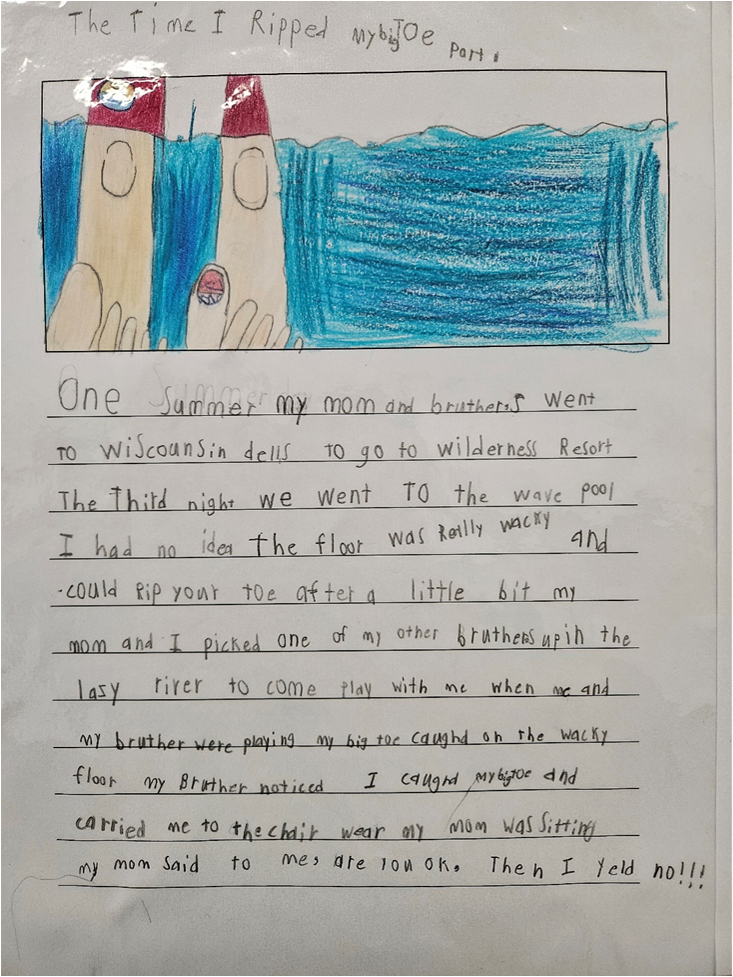 The Time I Ripped my big Toe
Part 1
One summer my mom and bruthers went
To wiscounsin dells to go to wilderness Resort
The Third night we went To the wave pool
I had no idea the floor was Really wacky and
could Rip your toe after a little bit my
mom and I picked one of my other bruthers up in the
lasy river to come play with me when me and
my bruther were playing my big toe caughd on the wacky
floor my Bruther noticed I caughd my big toe and
carried me to the chair wear my mom was sitting
my mom said to me, are you ok, Then I yeld no!!!